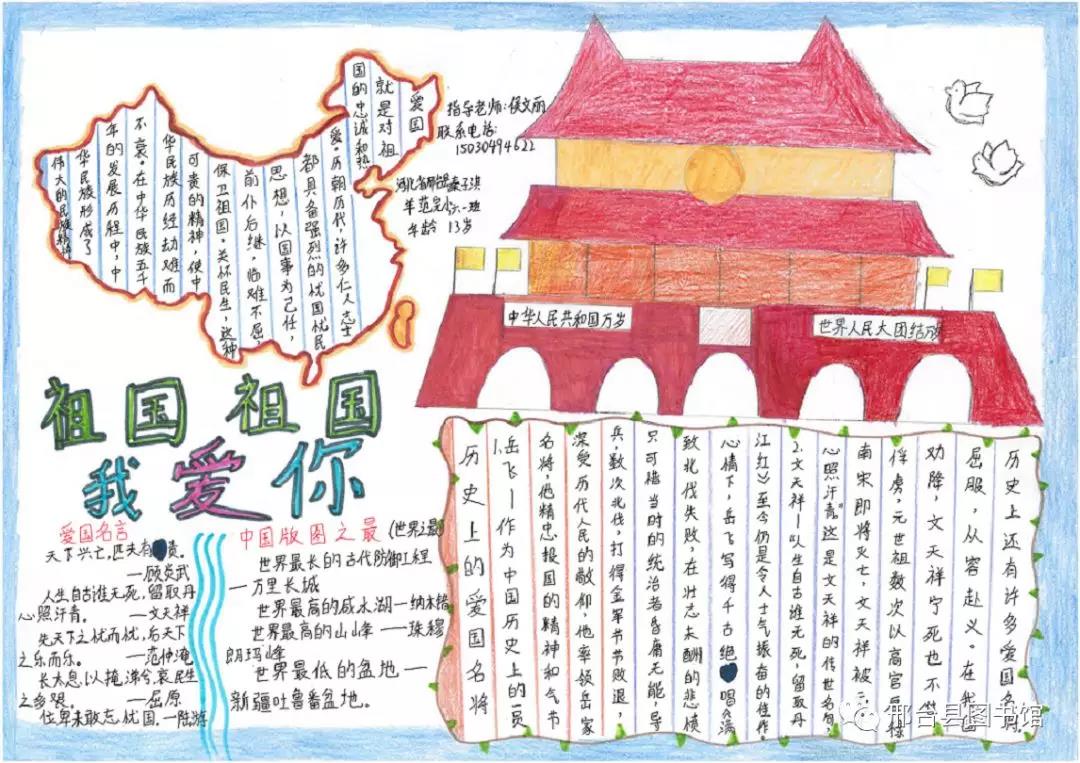 爱国
就是对祖
国的忠诚和热
爱。历朝历代,许多仁人志士
都具备强烈的忧国忧民
思想,以国事为己任,
前仆后继,临难不屈,
保卫祖国,关怀民生,这种
可贵的精神,使中
华民族历经劫难而
不衰。在中华民族五千
年的发展历程中,中
华民族形成了
伟大的民族精神
指导老师:侯文丽
联系电话:
15030494622
河北省邢台县
完小六一班
年龄 13岁
中华人民共和国万岁
世界人民大团结万岁
祖国 祖国
我爱你
爱国名言
天下兴亡,匹夫有责。
—顾炎武
人生自古谁无死,留取丹
心照汗青。 —文天祥
先天下之忧而忧,后天下
之乐而乐。 —范仲淹
长太息,以掩涕兮,哀民生
之多艰。 —屈原
位卑未敢忘忧国,—陆游
中国版图之最(世界之最)
世界最长的古代防御工程
—万里长城
世界最高的咸水湖—纳木错
世界最高的山峰—珠穆
朗玛峰
世界最低的盆地—
新疆吐鲁番盆地。
历史上的爱国名将
1.岳飞—作为中国历史上的一员
名将,他精忠报国的精神和气节
深受历代人民的敬仰,他率领岳家
兵,数次北伐,打得金军节节败退,
只可惜当时的统治者昏庸无能,导
致北伐失败,在壮志未酬的悲愤
心情下,岳飞写得千古绝唱《满
江红》至今仍是令人士气振奋的佳作。
2.文天祥—"人生自古谁无死,留取丹
心照汗青。"这是文天祥的传世名句,
南宋即将灭亡,文天祥被元
俘虏,元世祖数次以高官厚禄
劝降,文天祥宁死也不
屈服,从容赴义。在我国
历史上还有许多爱国名将.
邢台县图书馆